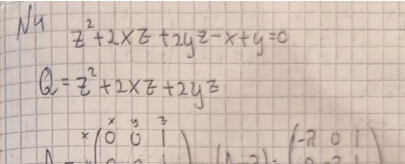 №4
z²+2xz+2yz-x+y=0
Q=z²+2xz+2yz
x y z
x (0 0 1) (-λ 0 1